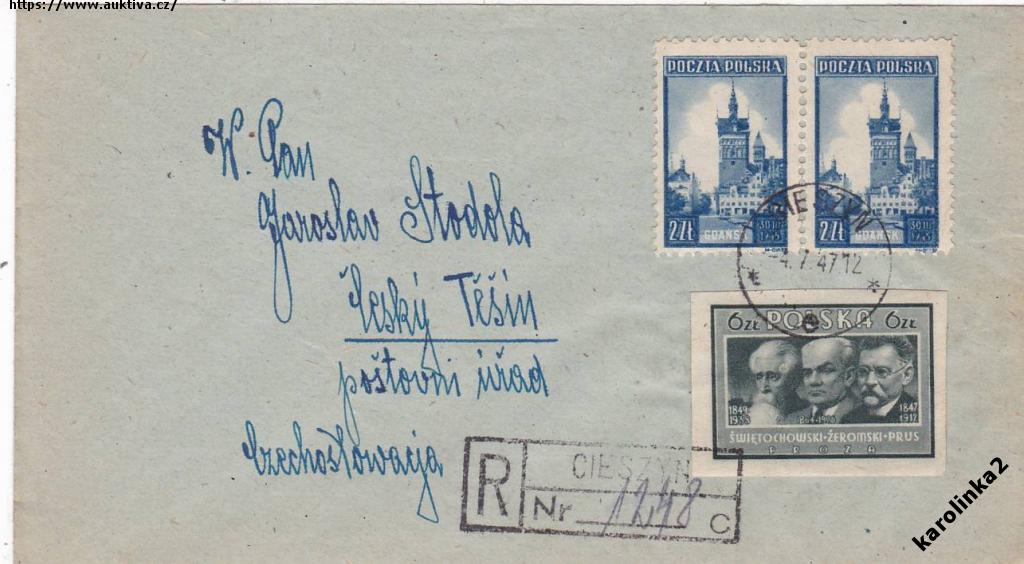 https://www.auktiva.cz/
POCZTA POLSKA
POCZTA POLSKA
2 Zł GDAŃSK 30 III 1945
2 Zł GDAŃSK 30 III 1945
CIESZYN
-4.7.47 12
W. Pan
Jaroslav Stodola
Český Těšín
poštovni úřad
Czechosłowacja
6 ZŁ POLSKA 6 ZŁ
1849 1938
1864-1925
1847 1912
ŚWIĘTOCHOWSKI·ŻEROMSKI·PRUS
PROZA
R
CIESZYN
Nr 1248 C
karolinka2